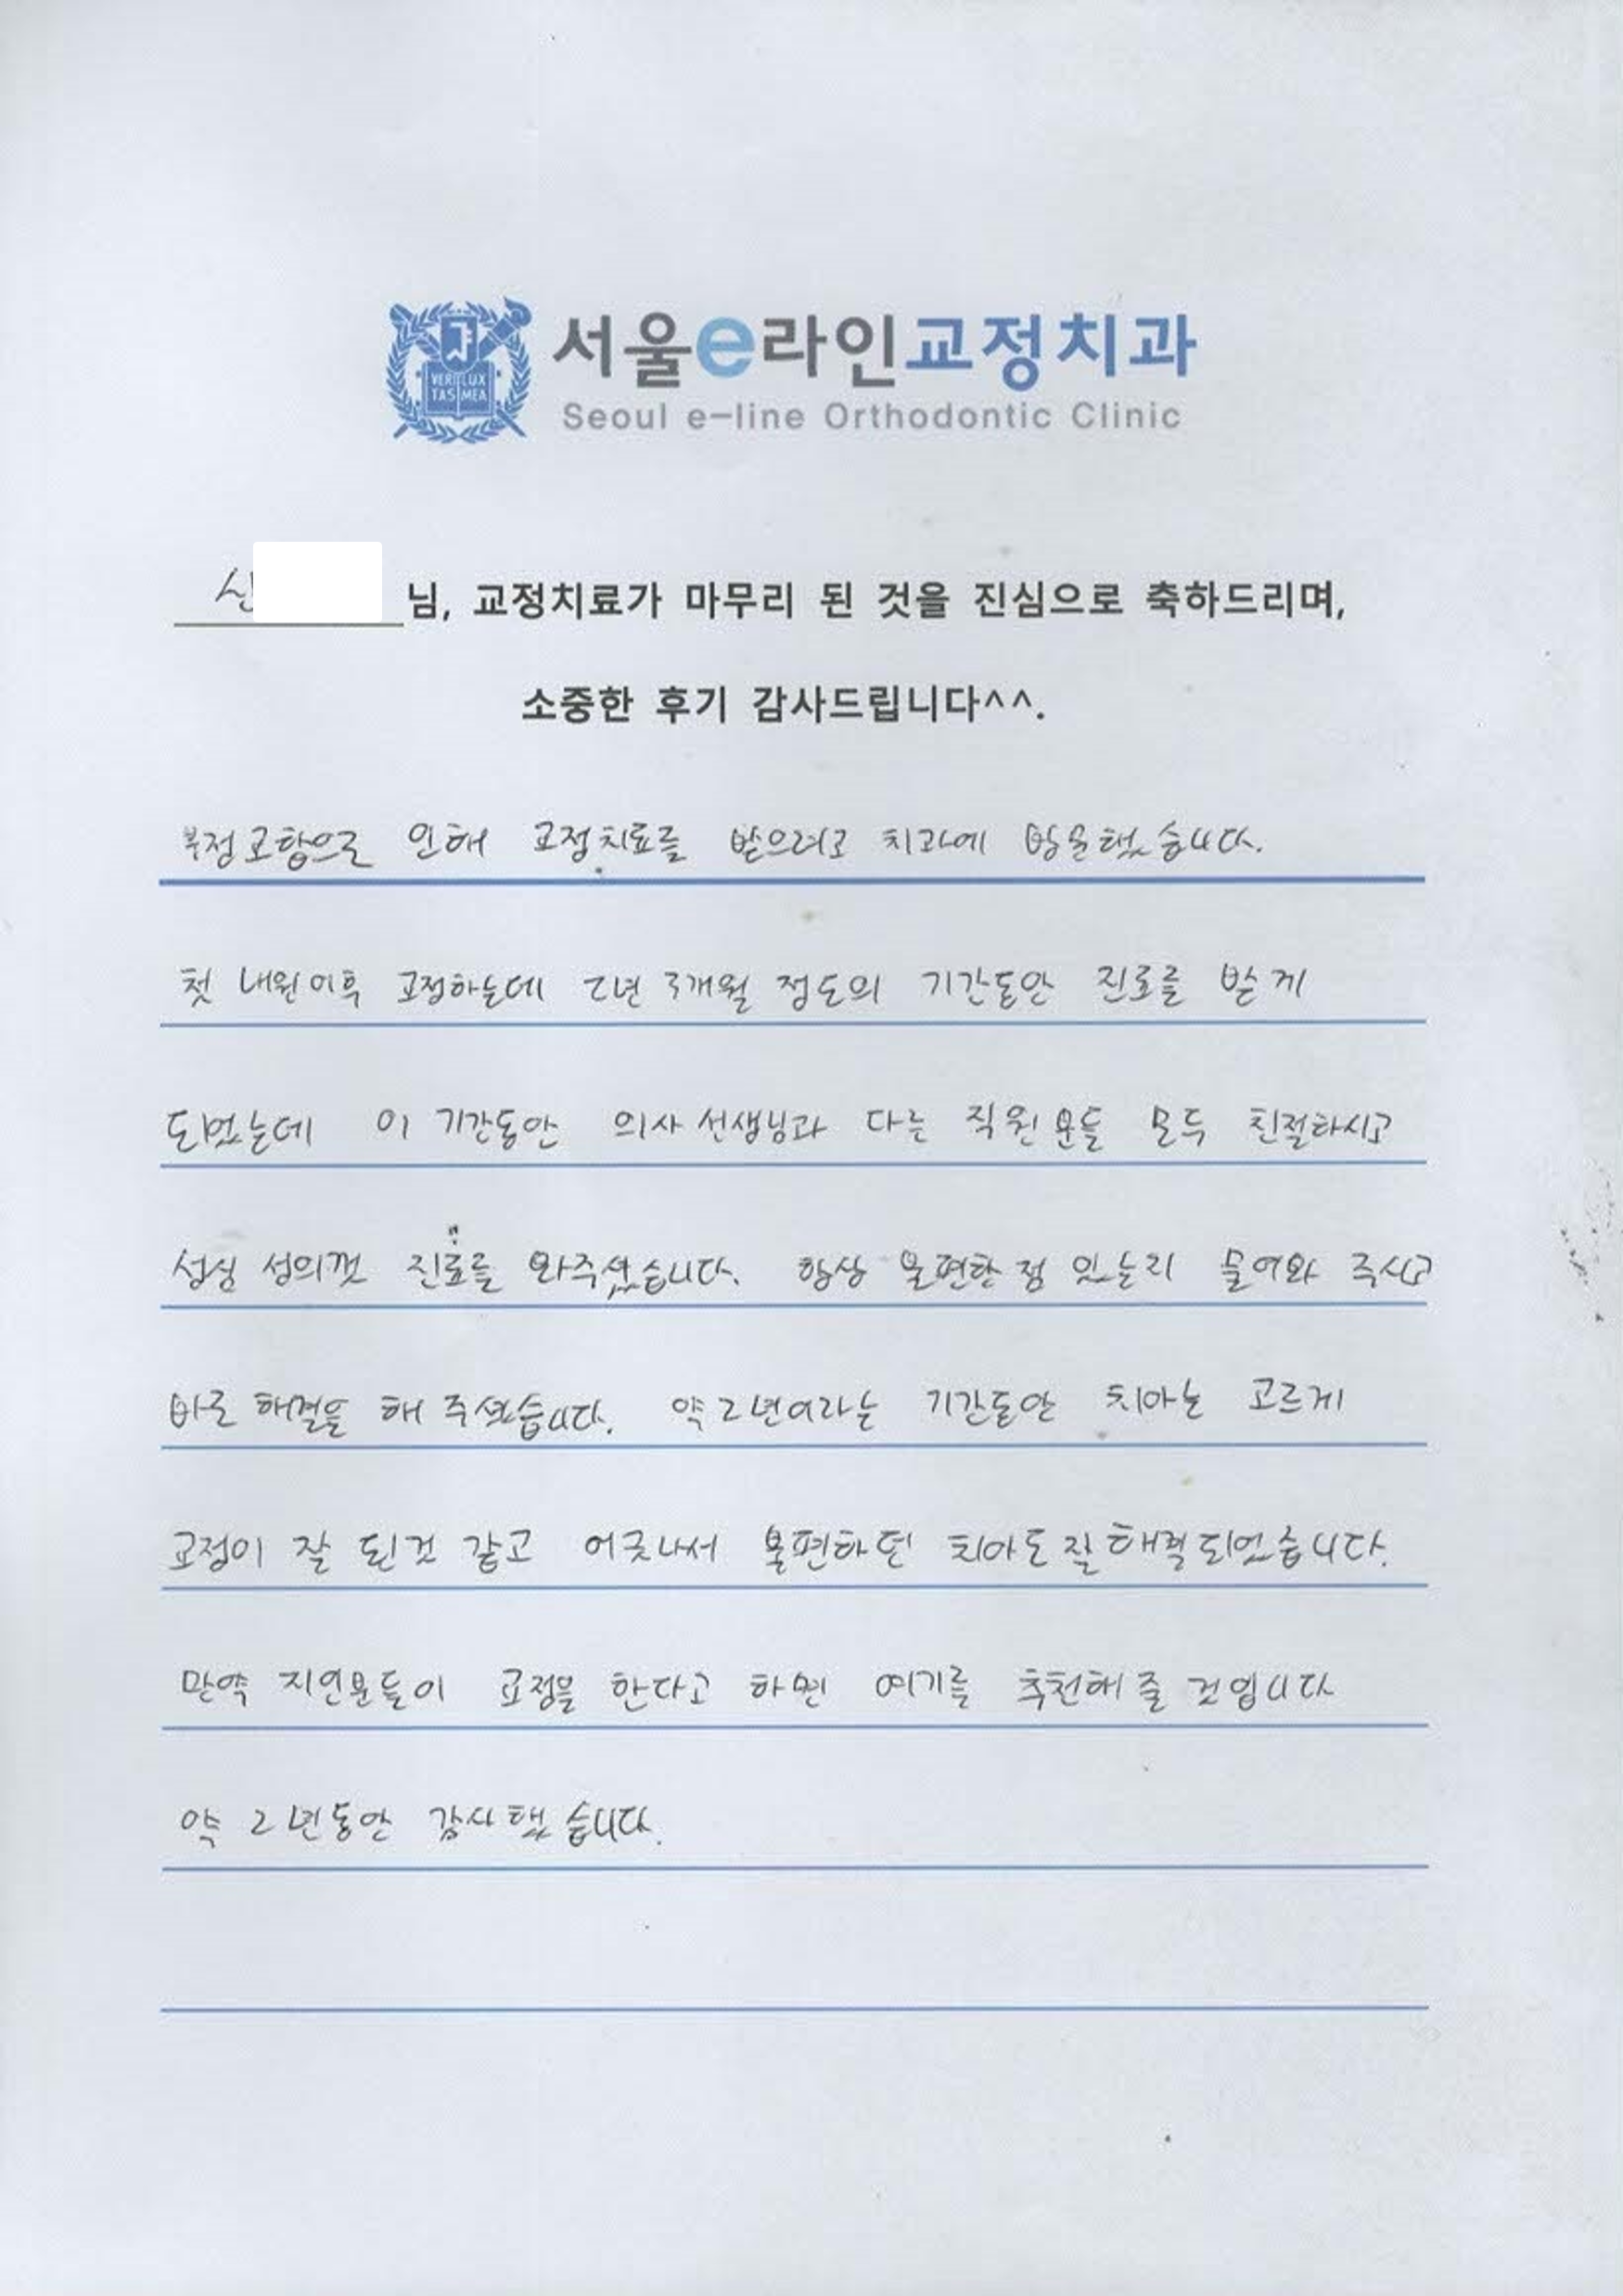 VERI LUX
TAS MEA
서울e라인교정치과
Seoul e-line Orthodontic Clinic
님, 교정치료가 마무리 된 것을 진심으로 축하드리며,
소중한 후기 감사드립니다^^.
부정교합으로 인해 교정치료를 받으려고 치과에 방문했습니다.
첫 내원이후 교정하는데 2년 3개월 정도의 기간동안 진료를 받게
되었는데 이 기간동안 의사 선생님과 다른 직원분들 모두 친절하시고
성심 성의껏 진료를 봐주셨습니다. 항상 불편한 점 있는지 물어봐 주시고
바로 해결을 해 주셨습니다. 약 2년여라는 기간동안 치아는 고르게
교정이 잘 된것 같고 어긋나서 불편하던 치아도 잘 해결되었습니다.
만약 지인분들이 교정을 한다고 하면 여기를 추천해 줄 것입니다
약 2년동안 감사했습니다.